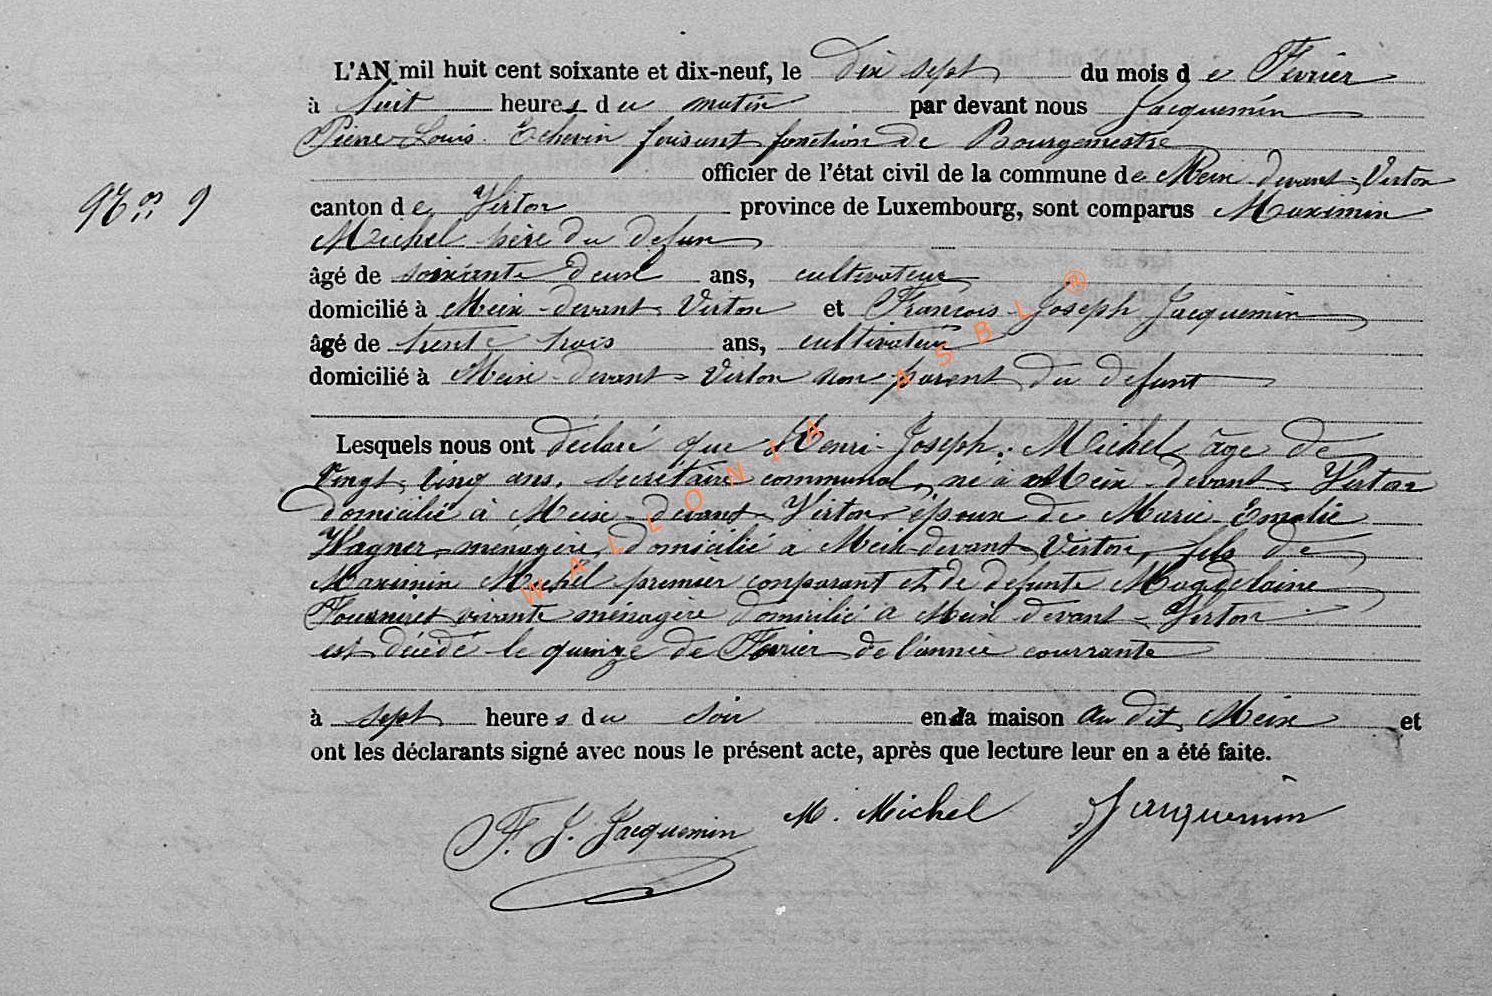 L'AN mil huit cent soixante et dix-neuf, le Dix sept du mois de Fevrier
à huit heures du matin par devant nous Jacquemin
Pierre Louis Echevin faisant fonction de Bourgmestre
officier de l'état civil de la commune de Meix devant Virton
Nos 9
canton de Virton province de Luxembourg, sont comparus Maximin
Michel père du defun
âgé de soixante deux ans, cultivateur
domicilié à Meix-devant Virton et François Joseph Jacquemin
âgé de trente trois ans, cultivateur
domicilié à Meix devant Virton non parent du defunt
Lesquels nous ont déclaré que Henri-Joseph Michel âge de
vingt cinq ans, secrétaire communal, né à Meix devant Virton
domicilié à Meix devant Virton époux de Marie Emelie
Wagner, menagère, domicilié à Meix devant Virton, fils de
Maximin Michel premier comparant et de defunte Magdelaine
vivante ménagère domicilié a Meix devant Virton
est décédé le quinze de Fevrier de l'année courrante
à sept heures du soir en sa maison au dit Meix et
ont les déclarants signé avec nous le présent acte, après que lecture leur en a été faite.
F. J. Jacquemin M. Michel Jacquemin
WALLONIA ASBL ®